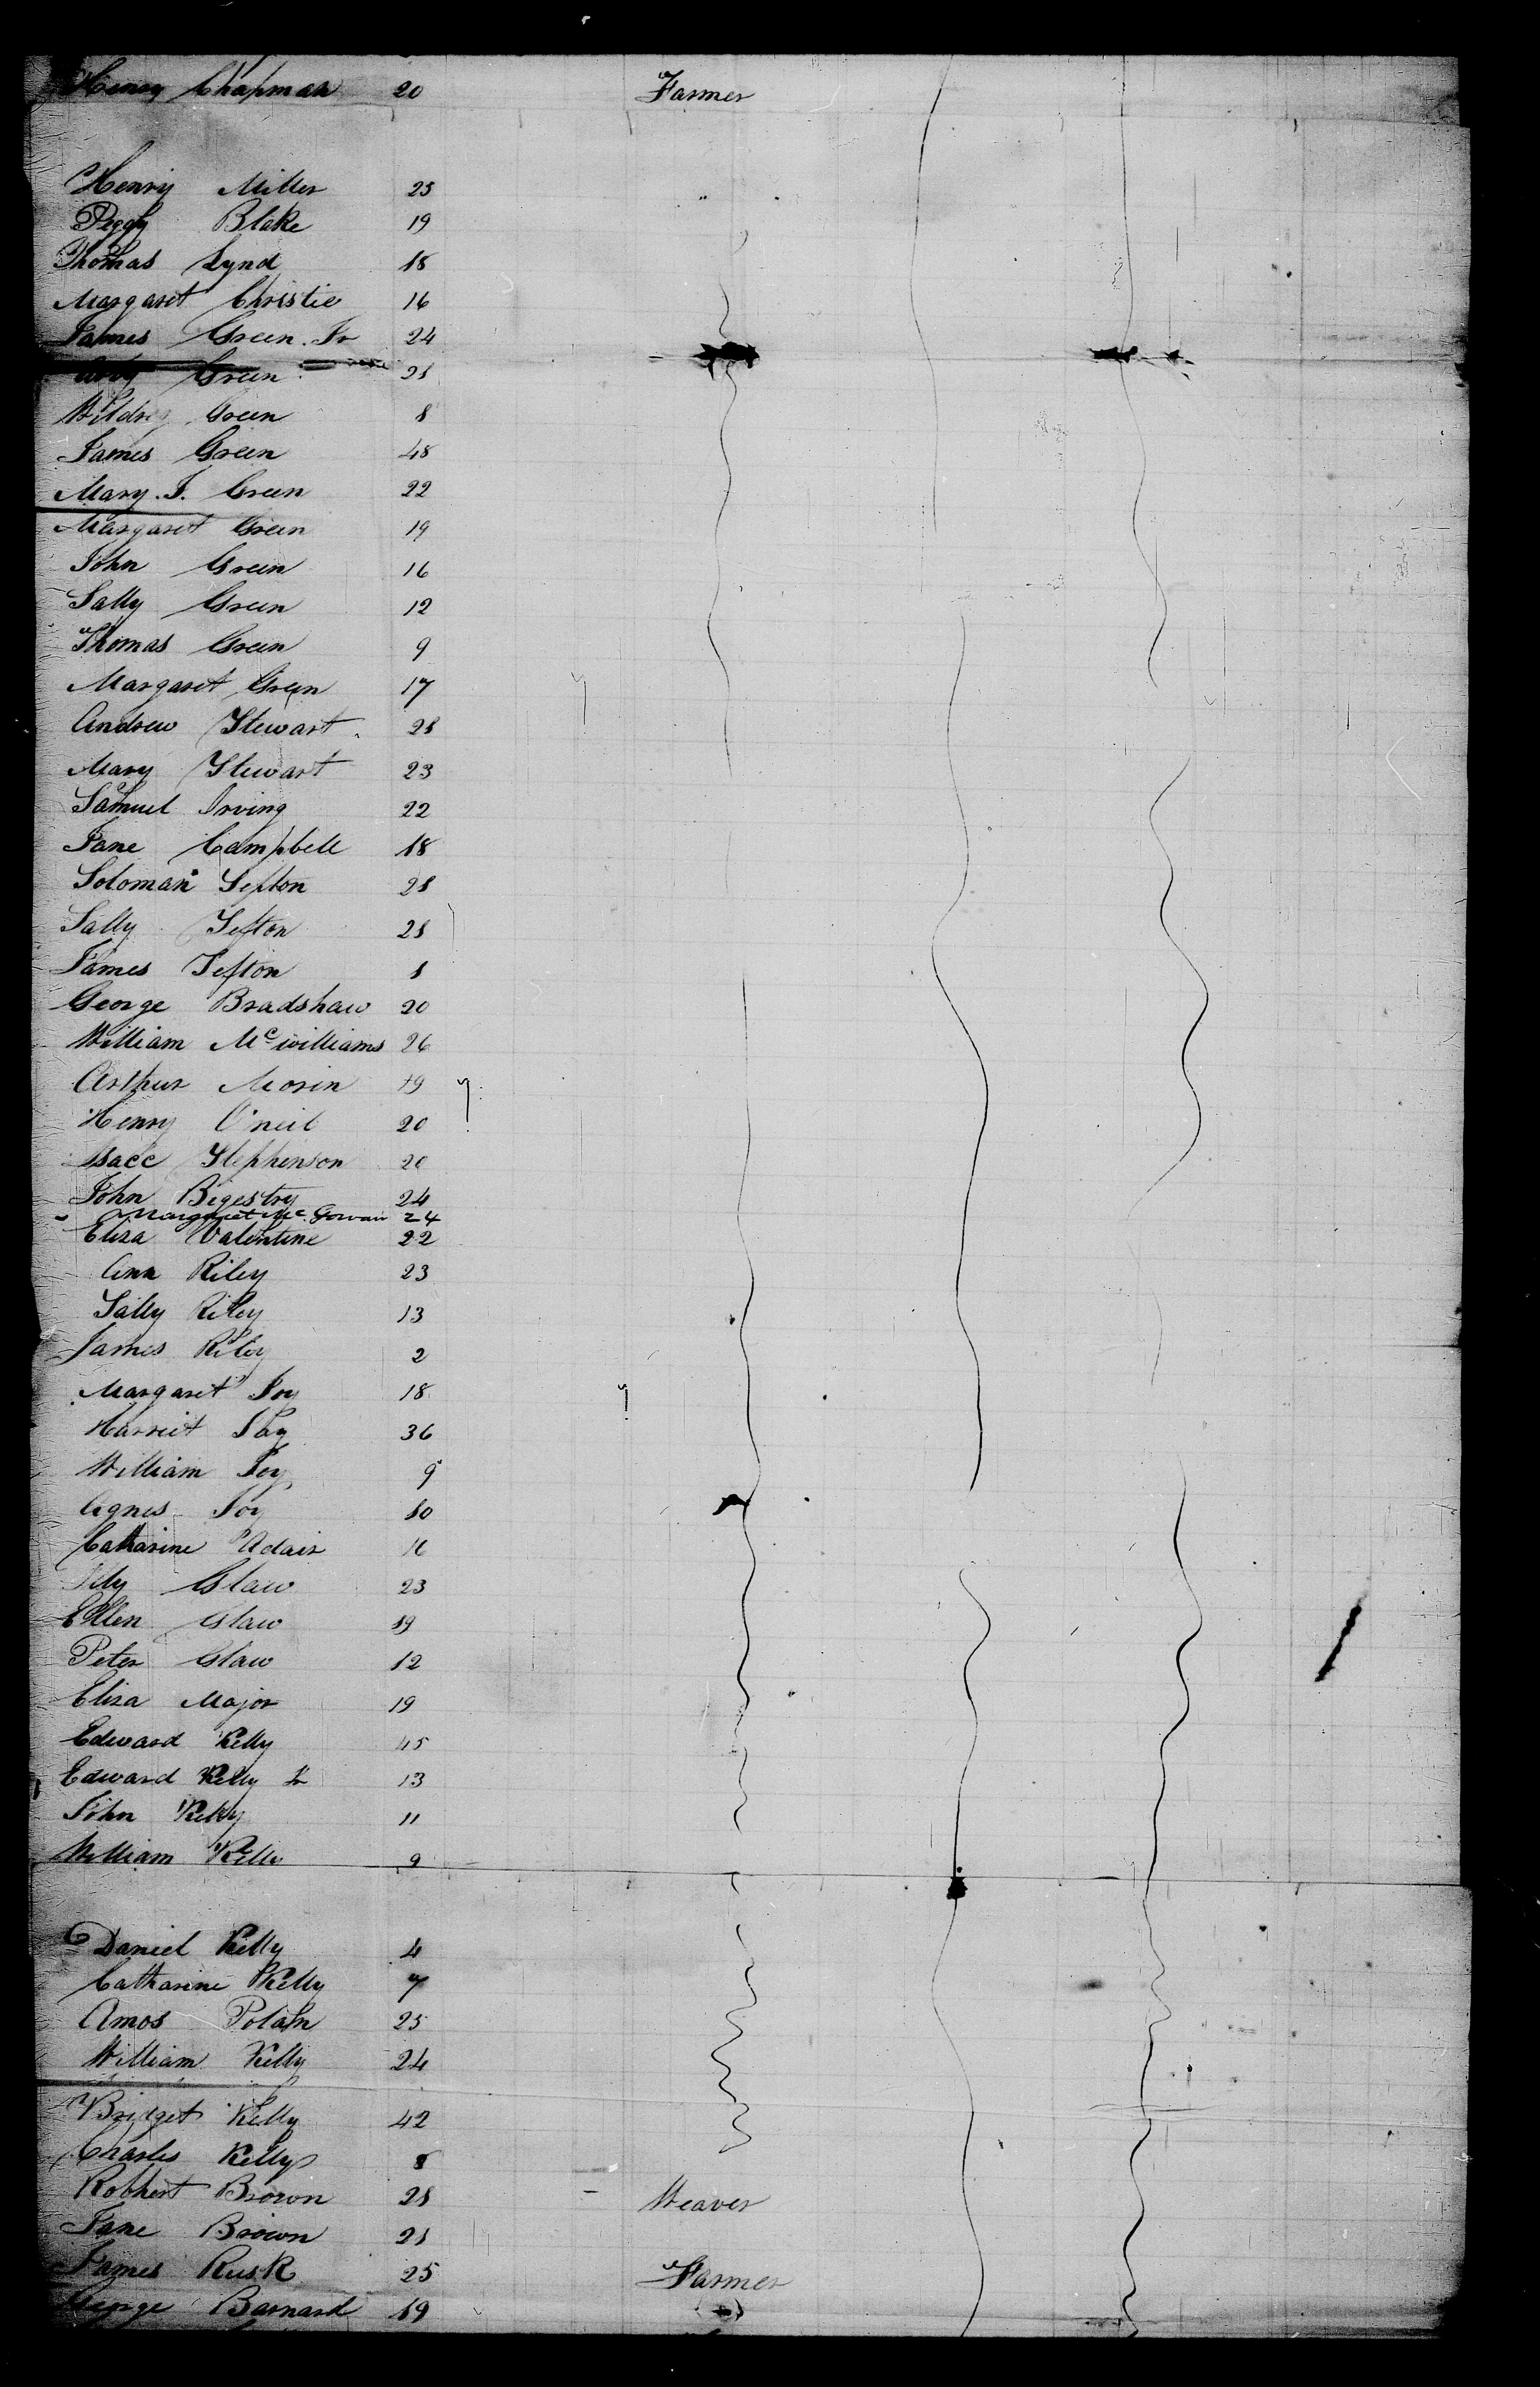 Henry Chapman 20 Farmer
Henry Miller 25
Peggy Blake 19
Thomas Lynd 18
Margaret Christie 16
James Green Jr 24
Green 21
Green 8
James Green 48
Mary J. Green 22
Margaret Green 19
John Green 16
Sally Green 12
Thomas Green 9
Margaret Green 17
Andrew Stewart 28
Mary Stewart 23
Samuel Irving 22
Jane Campbell 18
Soloman Sefton 28
Sally Sefton 28
James Sefton 1
George Bradshaw 20
William McWilliams 26
Arthur Morin 19
Henry O'neil 20
Isacc Stephenson 20
John Bigestry 24
Margaret Mc Gowan 24
Eliza Valentine 22
Ann Riley 23
Sally Riley 13
James Riley 2
Margaret Foy 18
Harriet 36
William Foy 9
Agnes Foy 10
Catharine Adair 16
Glaw 23
Ellen Glaw 19
Peter Glaw 12
Eliza Major 19
Edward Kelly 45
Edward Kelly Jr 13
John Kelly 11
William Kelly 9
Daniel Kelly 4
Catharine Kelly 7
Amos 25
William Kelly 24
Bridget Kelly 42
Charles Kelly 8
Robhert Brown 28 Weaver
Jane Brown 21
James Rusk 25 Farmer
George Barnard 19